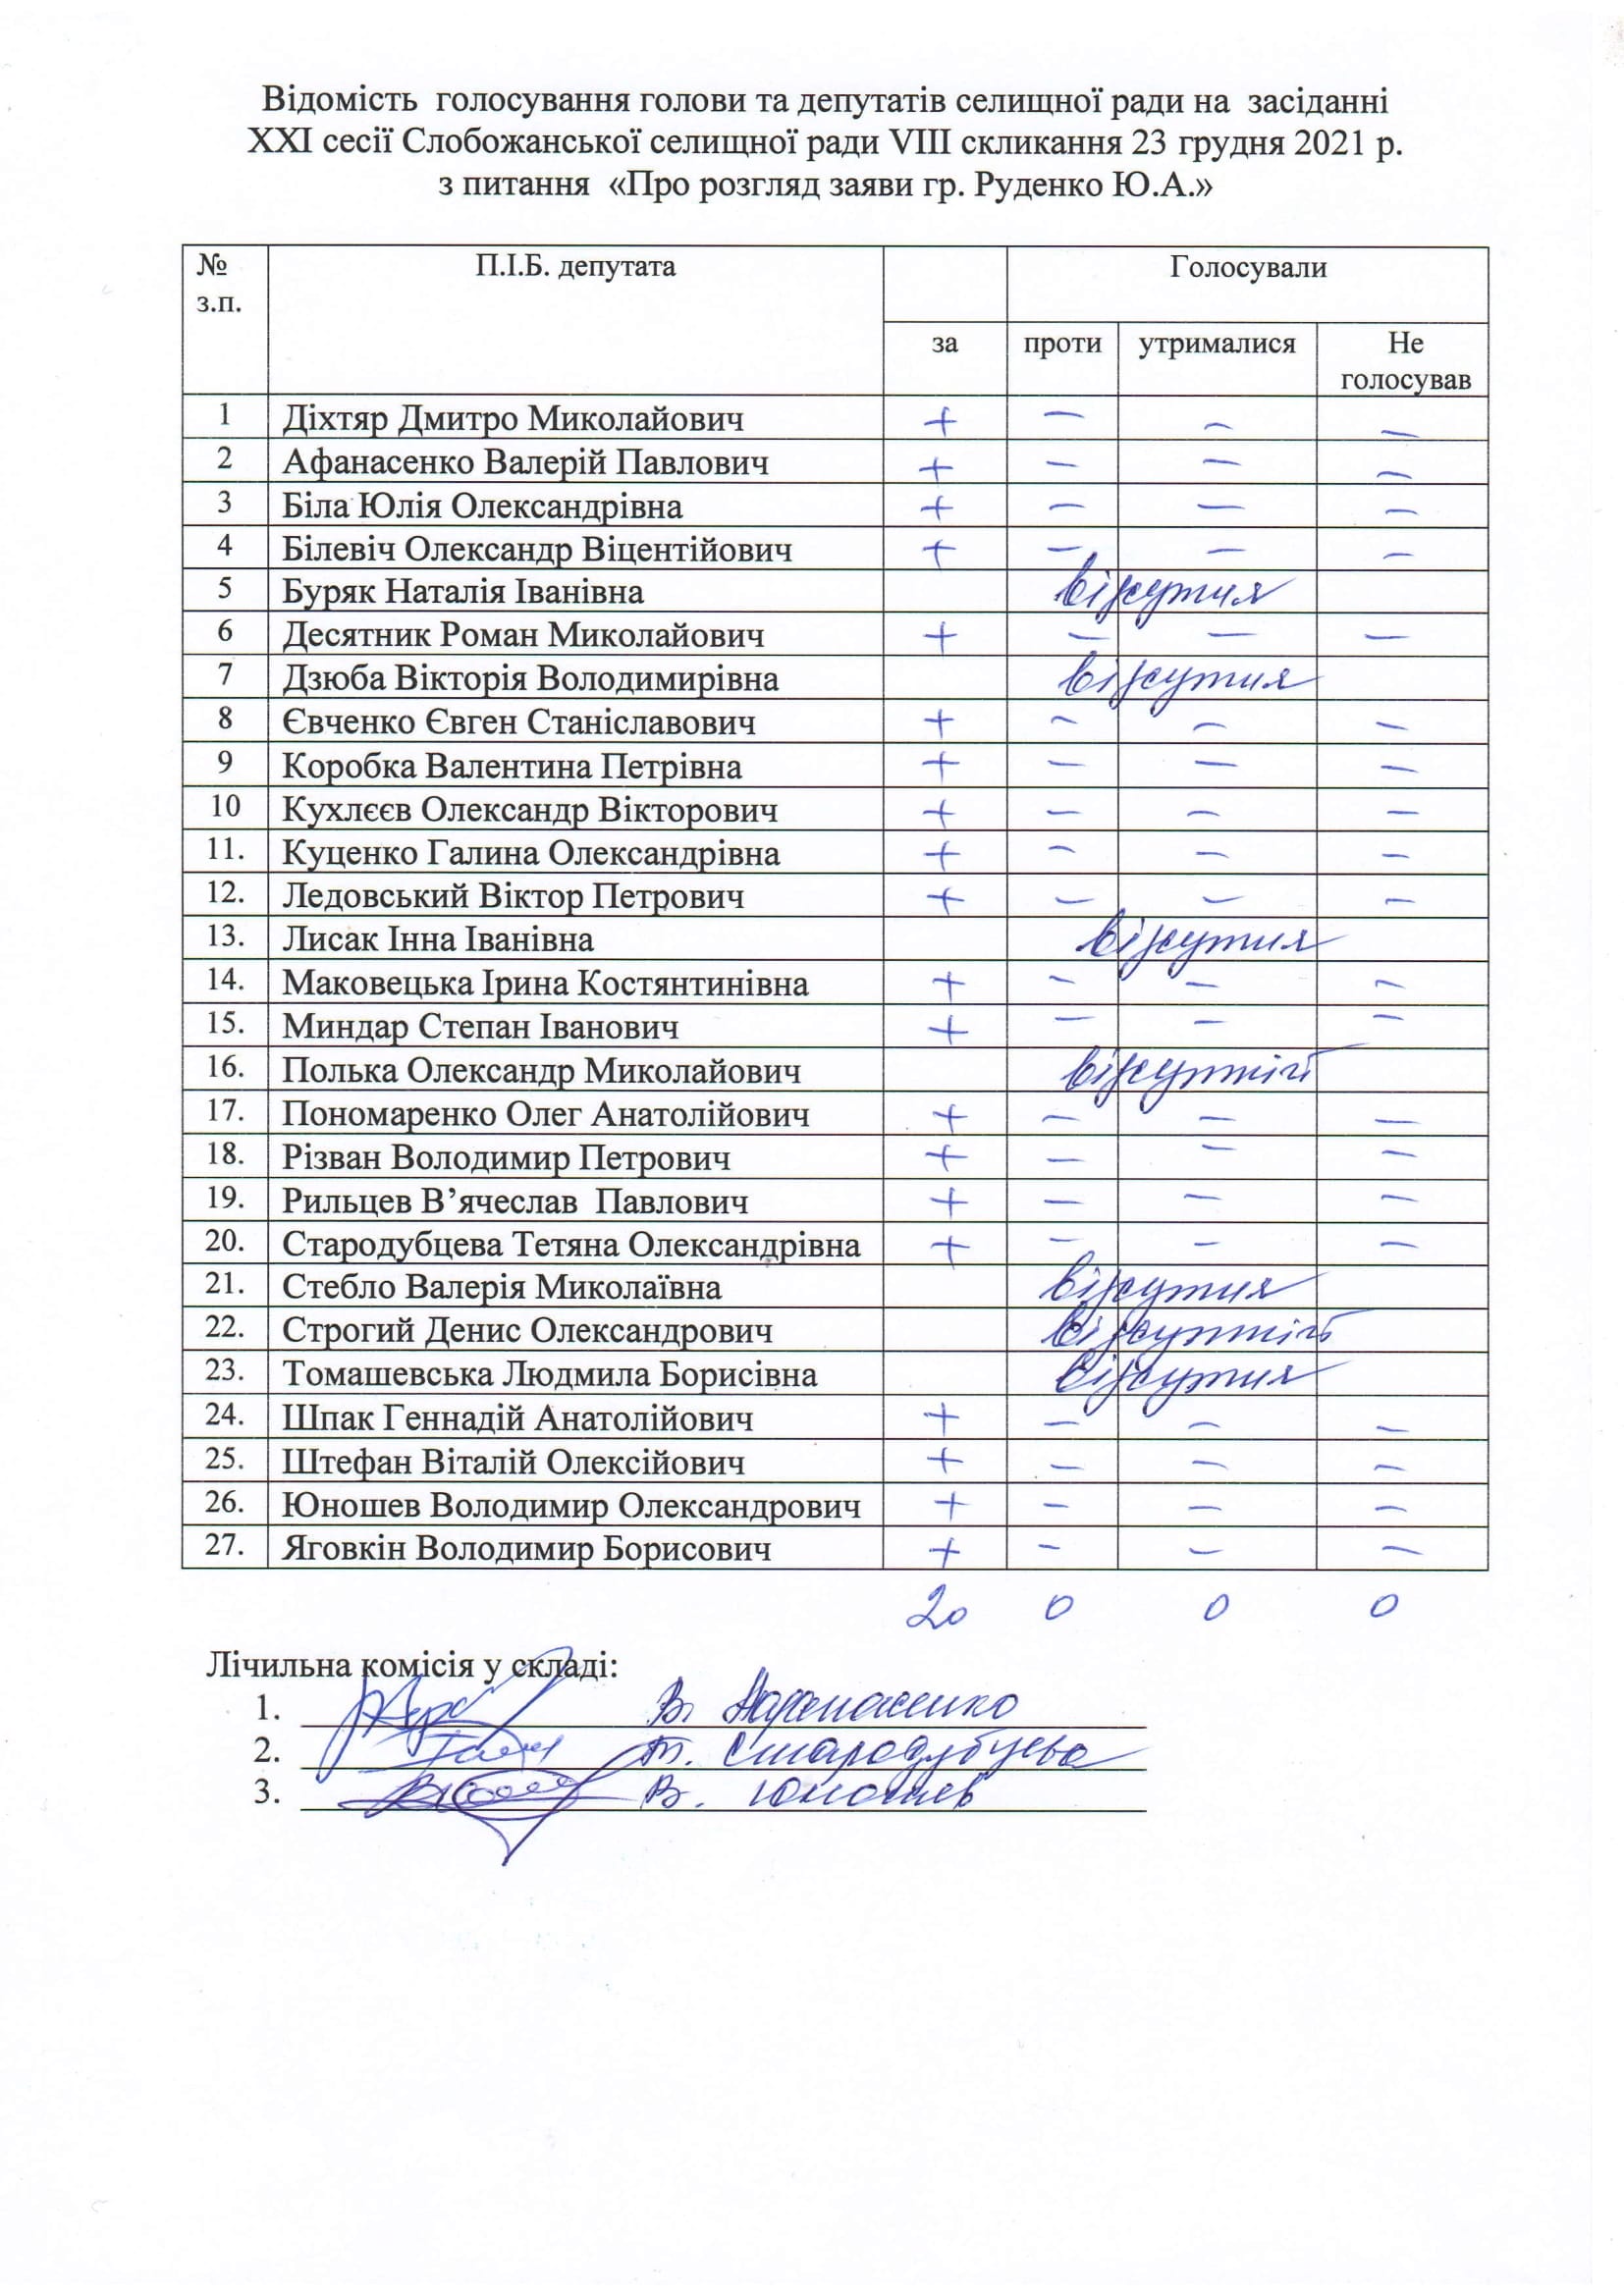 Відомість голосування голови та депутатів селищної ради на засіданні
XXI сесії Слобожанської селищної ради VIII скликання 23 грудня 2021 р.
з питання «Про розгляд заяви гр. Руденко Ю.А.»
№ з.п. П.І.Б. депутата Голосували
за проти утрималися Не голосував
1 Діхтяр Дмитро Миколайович + — — —
2 Афанасенко Валерій Павлович + — — —
3 Біла Юлія Олександрівна + — — —
4 Білевіч Олександр Віцентійович + — — —
5 Буряк Наталія Іванівна відсутня
6 Десятник Роман Миколайович + — — —
7 Дзюба Вікторія Володимирівна відсутня
8 Євченко Євген Станіславович + — — —
9 Коробка Валентина Петрівна + — — —
10 Кухлєєв Олександр Вікторович + — — —
11. Куценко Галина Олександрівна + — — —
12. Ледовський Віктор Петрович + — — —
13. Лисак Інна Іванівна відсутня
14. Маковецька Ірина Костянтинівна + — — —
15. Миндар Степан Іванович + — — —
16. Полька Олександр Миколайович відсутній
17. Пономаренко Олег Анатолійович + — — —
18. Різван Володимир Петрович + — — —
19. Рильцев В’ячеслав Павлович + — — —
20. Стародубцева Тетяна Олександрівна + — — —
21. Стебло Валерія Миколаївна відсутня
22. Строгий Денис Олександрович відсутній
23. Томашевська Людмила Борисівна відсутня
24. Шпак Геннадій Анатолійович + — — —
25. Штефан Віталій Олексійович + — — —
26. Юношев Володимир Олександрович + — — —
27. Яговкін Володимир Борисович + — — —
20 0 0 0
Лічильна комісія у складі:
1. В. Афанасенко
2. Т. Стародубцева
3. В. Юношев